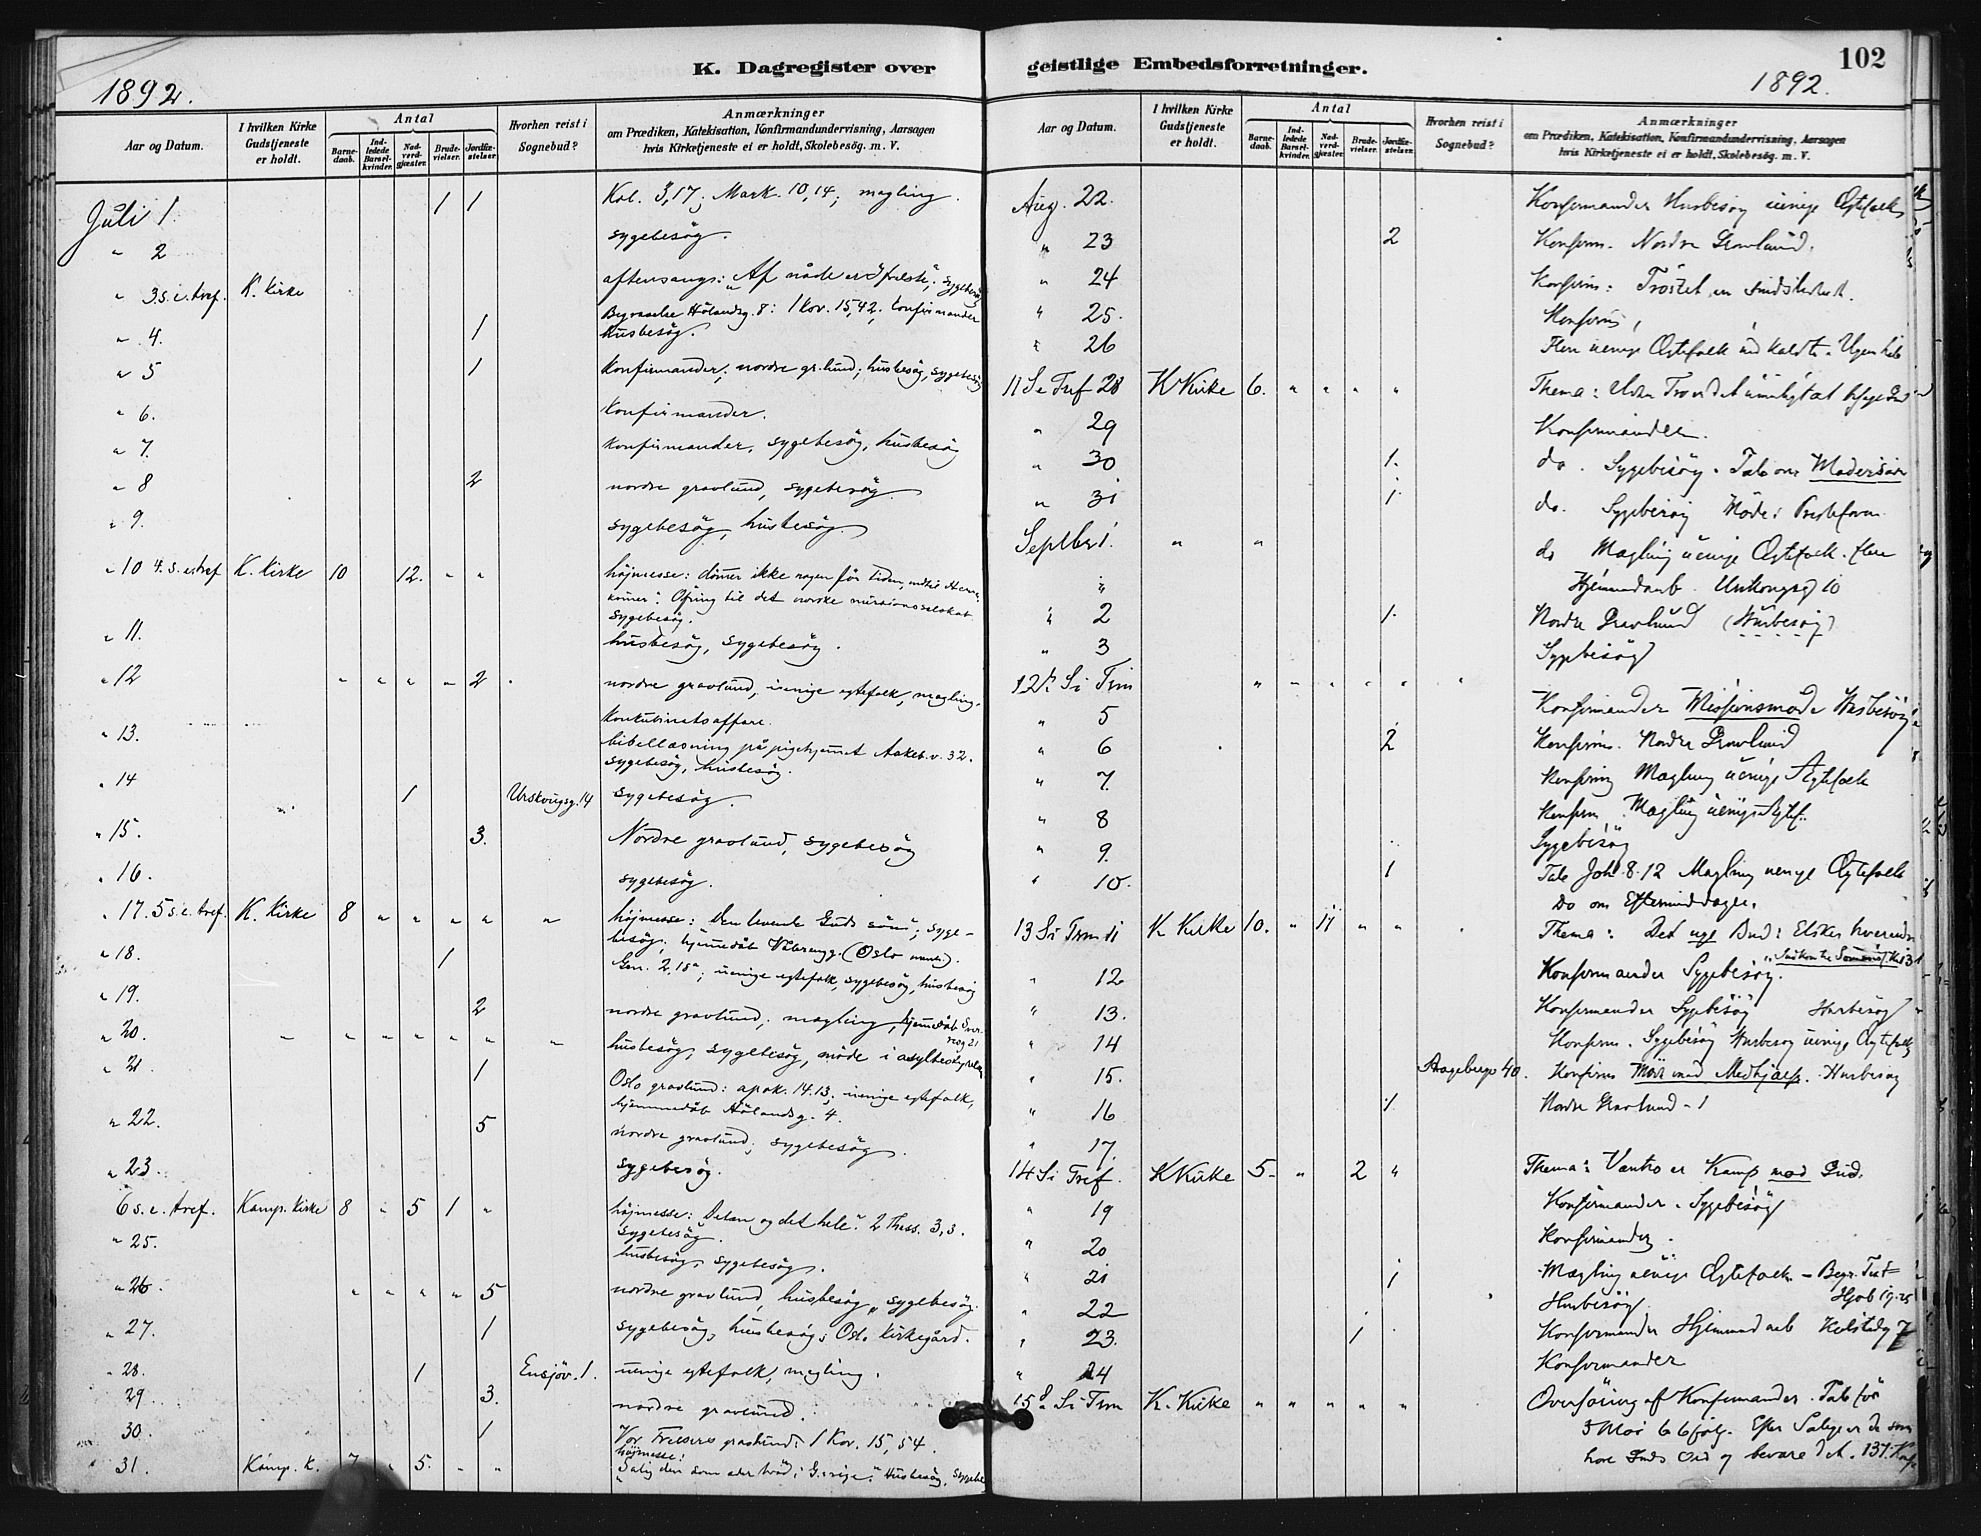 K. Dagregister over
geistlige Embedsforretninger.
102
1892.
1892.
Aar og Datum.
I hvilken Kirke Gudstjeneste er holdt.
Antal
Barne-daab.
Ind-ledede Barsel-kvinder.
Nad-verd-gjæster.
Brude-vielser.
Jordfæ-stelser.
Hvorhen reist i Sognebud?
Anmærkninger
om Prædiken, Katekisation, Konfirmandundervisning, Aarsagen
hvis Kirketjeneste ei er holdt, Skolebesøg. m. V.
Juli 1. 1 1 Kol. 3,17; Mark. 10,14; mægling.
" 2 sygebesög.
" 3 s. e. tref. K. Kirke aftensangs: "Af nåde er I frelste"; sygebesög
" 4. 1 Begravelse Hölandsg. 8: 1 Kor. 15,42; confirmander
husbesög.
" 5 1 konfirmander; nordre gr.lund; husbesög, sygebesög
" 6. konfirmander.
" 7. konfirmander, sygebesög, husbesög
" 8 2 nordre gravlund, sygebesög.
" 9. sygebesög, husbesög.
" 10 4. s. e. tref K. Kirke 10 12. " " höjmesse: dömer ikke nogen för tiden, indtil Herren
kommer". Ofring til det norske missionsselskab
sygebesög.
" 11. husbesög, sygebesög.
" 12 " " " " 2 nordre gravlund, uenige egtefolk, mægling,
konkubinatsaffære.
" 13. bibellæsning på pigehjemmet Aakeb.v. 32.
sygebesög, husbesög.
" 14 1 Urskougsg. 14 sygebesög.
" 15. 3. Nordre gravlund, sygebesög
" 16. sygebesög.
" 17. 5 s. e. tref. K. Kirke 8 " " " " " höjmesse: Den levende Guds sön; syge-
besög; hjemmedåb (Oslo
" 18. 1 Gen. 2,18; uenige egtefolk, sygebesög, husbesög
" 19. 2 nordre gravlund; mægling, hjemmedåb
" 20. " " " " " " " husbesög, sygebesög, möde i asylbestyrelsen
" 21. 1 Oslo gravlund: apok. 14.13; uenige egtefolk,
hjemmedåb Hölandsg. 4.
" 22. 5 nordre gravlund; sygebesög.
" 23. sygebesög.
6 s. e. tref. Kamp. Kirke 8 " 5 1 " höjmesse: Delen og det hele". 2 Thess. 3,3.
sygebesög.
" 25. husbesög, sygebesög.
" 26. " " " " 5 nordre gravlund, husbesög, sygebesög.
" 27. 1 sygebesög, husbesög; Oslo Kirkegård.
" 28. 1 Ensjöv. 1. uenige egtefolk, mægling.
29. 3. nordre gravlund.
30. 1 Vor Frelsers gravlund: 1 Kor. 15, 54.
31. Kamp. K. 7 " 5. " " höjmesse:
"Salig den som Husbesög, sygebe
Aar og Datum.
I hvilken Kirke Gudstjeneste er holdt.
Antal
Barne-daab.
Ind-ledede Barsel-kvinder.
Nad-verd-gjæster.
Brude-vielser.
Jordfæ-stelser.
Hvorhen reist i Sognebud?
Anmærkninger
om Prædiken, Katekisation, Konfirmandundervisning, Aarsagen
hvis Kirketjeneste ei er holdt, Skolebesøg. m. V.
Aug. 22. Konfirmander Husbesøg uenige Ægtefolk
" 23 2 Konfirm. Nordre Gravlund.
" 24 Konfirm:
" 25. Konfirm,
" 26 Flere uenige Ægtefolk
11 S. e Tref 28 K Kirke 6. " " " " Thema: Uden Tro er det umuligt at
" 29 Konfirmander.
" 30 1. do. Sygebesög. Tale
" 31 1. do. Sygebesög Møde i
Septbr 1. " " do Mægling uenige Ægtefolk. flere
Hjemmedaab. Urskougsg 10
" 2 1. Nordre Gravlund (Husbesög)
" 3 Sygebesög
12te S. e Trin " " " " " "
" 5 Konfirmander Missionsmøde Husbesög
" 6 2 Konfirm. Nordre Gravlund
" 7. Konfirm Mægling uenige Ægtefolk
" 8 Konfirm Mægling uenige Ægtef.
" 9. Sygebesög
" 10. 1 Tale Joh. 8.12 Mægling uenige Ægtefolk
Do om Eftermiddagen.
13 S. e Trin 11 K Kirke 10. " 11 " " Thema: Det nye Bud: Elsker hverandre
" 12 Konfirmander Sygebesög.
" 13. Konfirmander Sygebesög Husbesög
" 14 Konfirm. Sygebesög Husbesög uenige Ægtefolk
" 15. 40. Konfirm Møde med Medhjælp. Husbesög
" 16 1 Nordre Gravlund - 1
" 17.
14 S. e Tref. K Kirke 5. " 2 " Thema: Vantro er Kamp mod Gud.
" 19 Konfirmander. Sygebesög
" 20 Konfirmander.
" 21 1 Mægling uenige Ægtefolk - Begr. Text
Hjob 19.25
" 22 Husbesög
" 23. 1 Konfirmander Hjemmedaab 7
" 24 Konfirmander
15de S. e Trin K. Kirke " " " " " Overhöring af Konfirmander. Tale for
5 Mos 6 6 følg. Efter Salige er de som
høre Guds Ord og bevare det. 137.